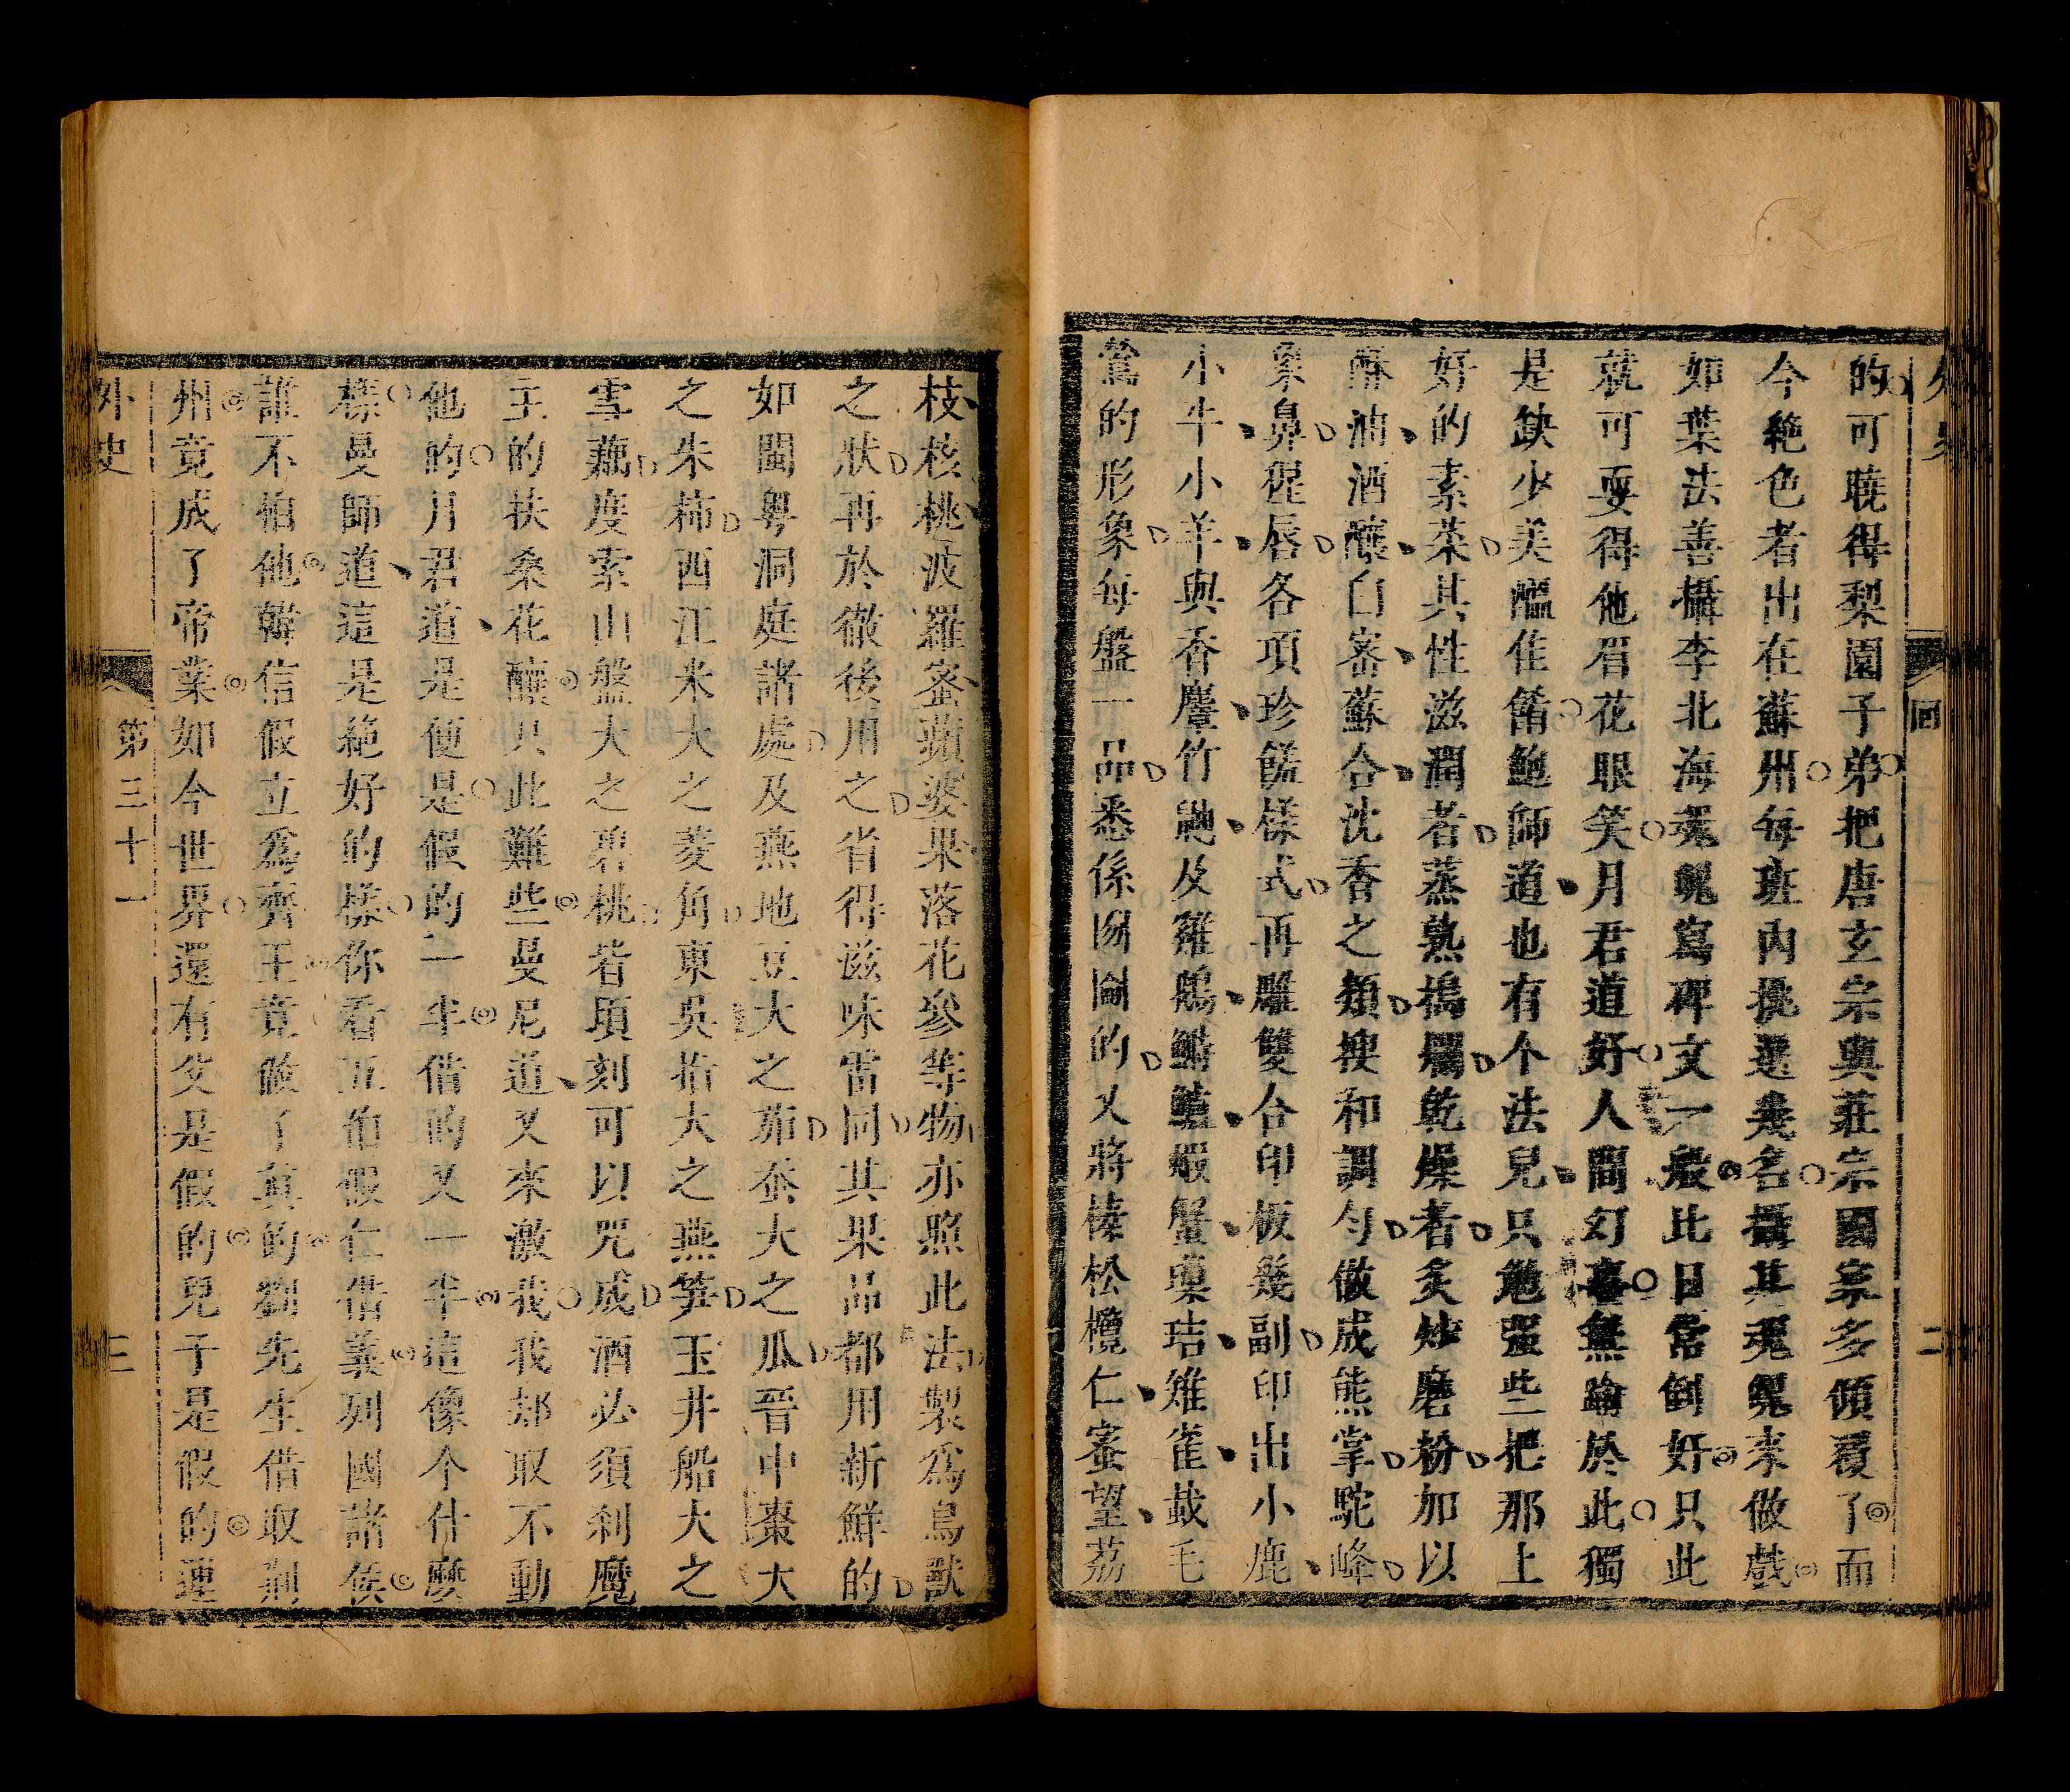 外史
回
二
的可曉得梨園子弟把唐玄宗與莊宗國家多傾覆了而
今絕色者出在蘇州每班內挑選幾名攝其魂魄來做戲
如葉法善攝李北海魂魄寫碑文一般此日當倒好只此
就可耍得他眉花眼笑月君道好人間幻喜無踰於此獨
是缺少美醞佳餚鮑師道也有个法兒只勉强些把那上
好的素菜其性滋潤者蒸熟搗爛乾燥者炙炒磨粉加以
酥油酒釀白蜜蘇合沈香之類搜和調勻做成熊掌駝峰
象鼻猩唇各項珍饈樣式再雕雙合印板幾副印出小鹿
小牛小羊與香麞竹䶉及雞鵝鱘鱑蝦蟹菓玵雉雀蔌毛
鴛的形象每盤一品悉係囫圇的又將榛松欖仁蜜望荔
枝核桃波羅蜜蘋婆果落花參等物亦照此法製爲鳥獸
之狀再於徹後用之省得滋味雷同其果品都用新鮮的
如閩粵洞庭諸處及燕地豆大之茄蚕大之瓜晉中棗大
之朱柿西江米大之菱角東吳指大之燕笋玉井船大之
雪藕度索山盤大之碧桃若頃刻可以咒成酒必須刹魔
主的扶桑花釀只此難些曼尼道又來激我我却取不動
他的月君道是便是假的一半借的又一半這像个什麼
樣曼師道這是絕好的樣你看五伯假仁借義列國諸侯
誰不怕他韓信假立爲齊王竟做了真的劉先生借取荆
州竟成了帝業如今世界還有父是假的兒子是假的連
外史
第三十一
三